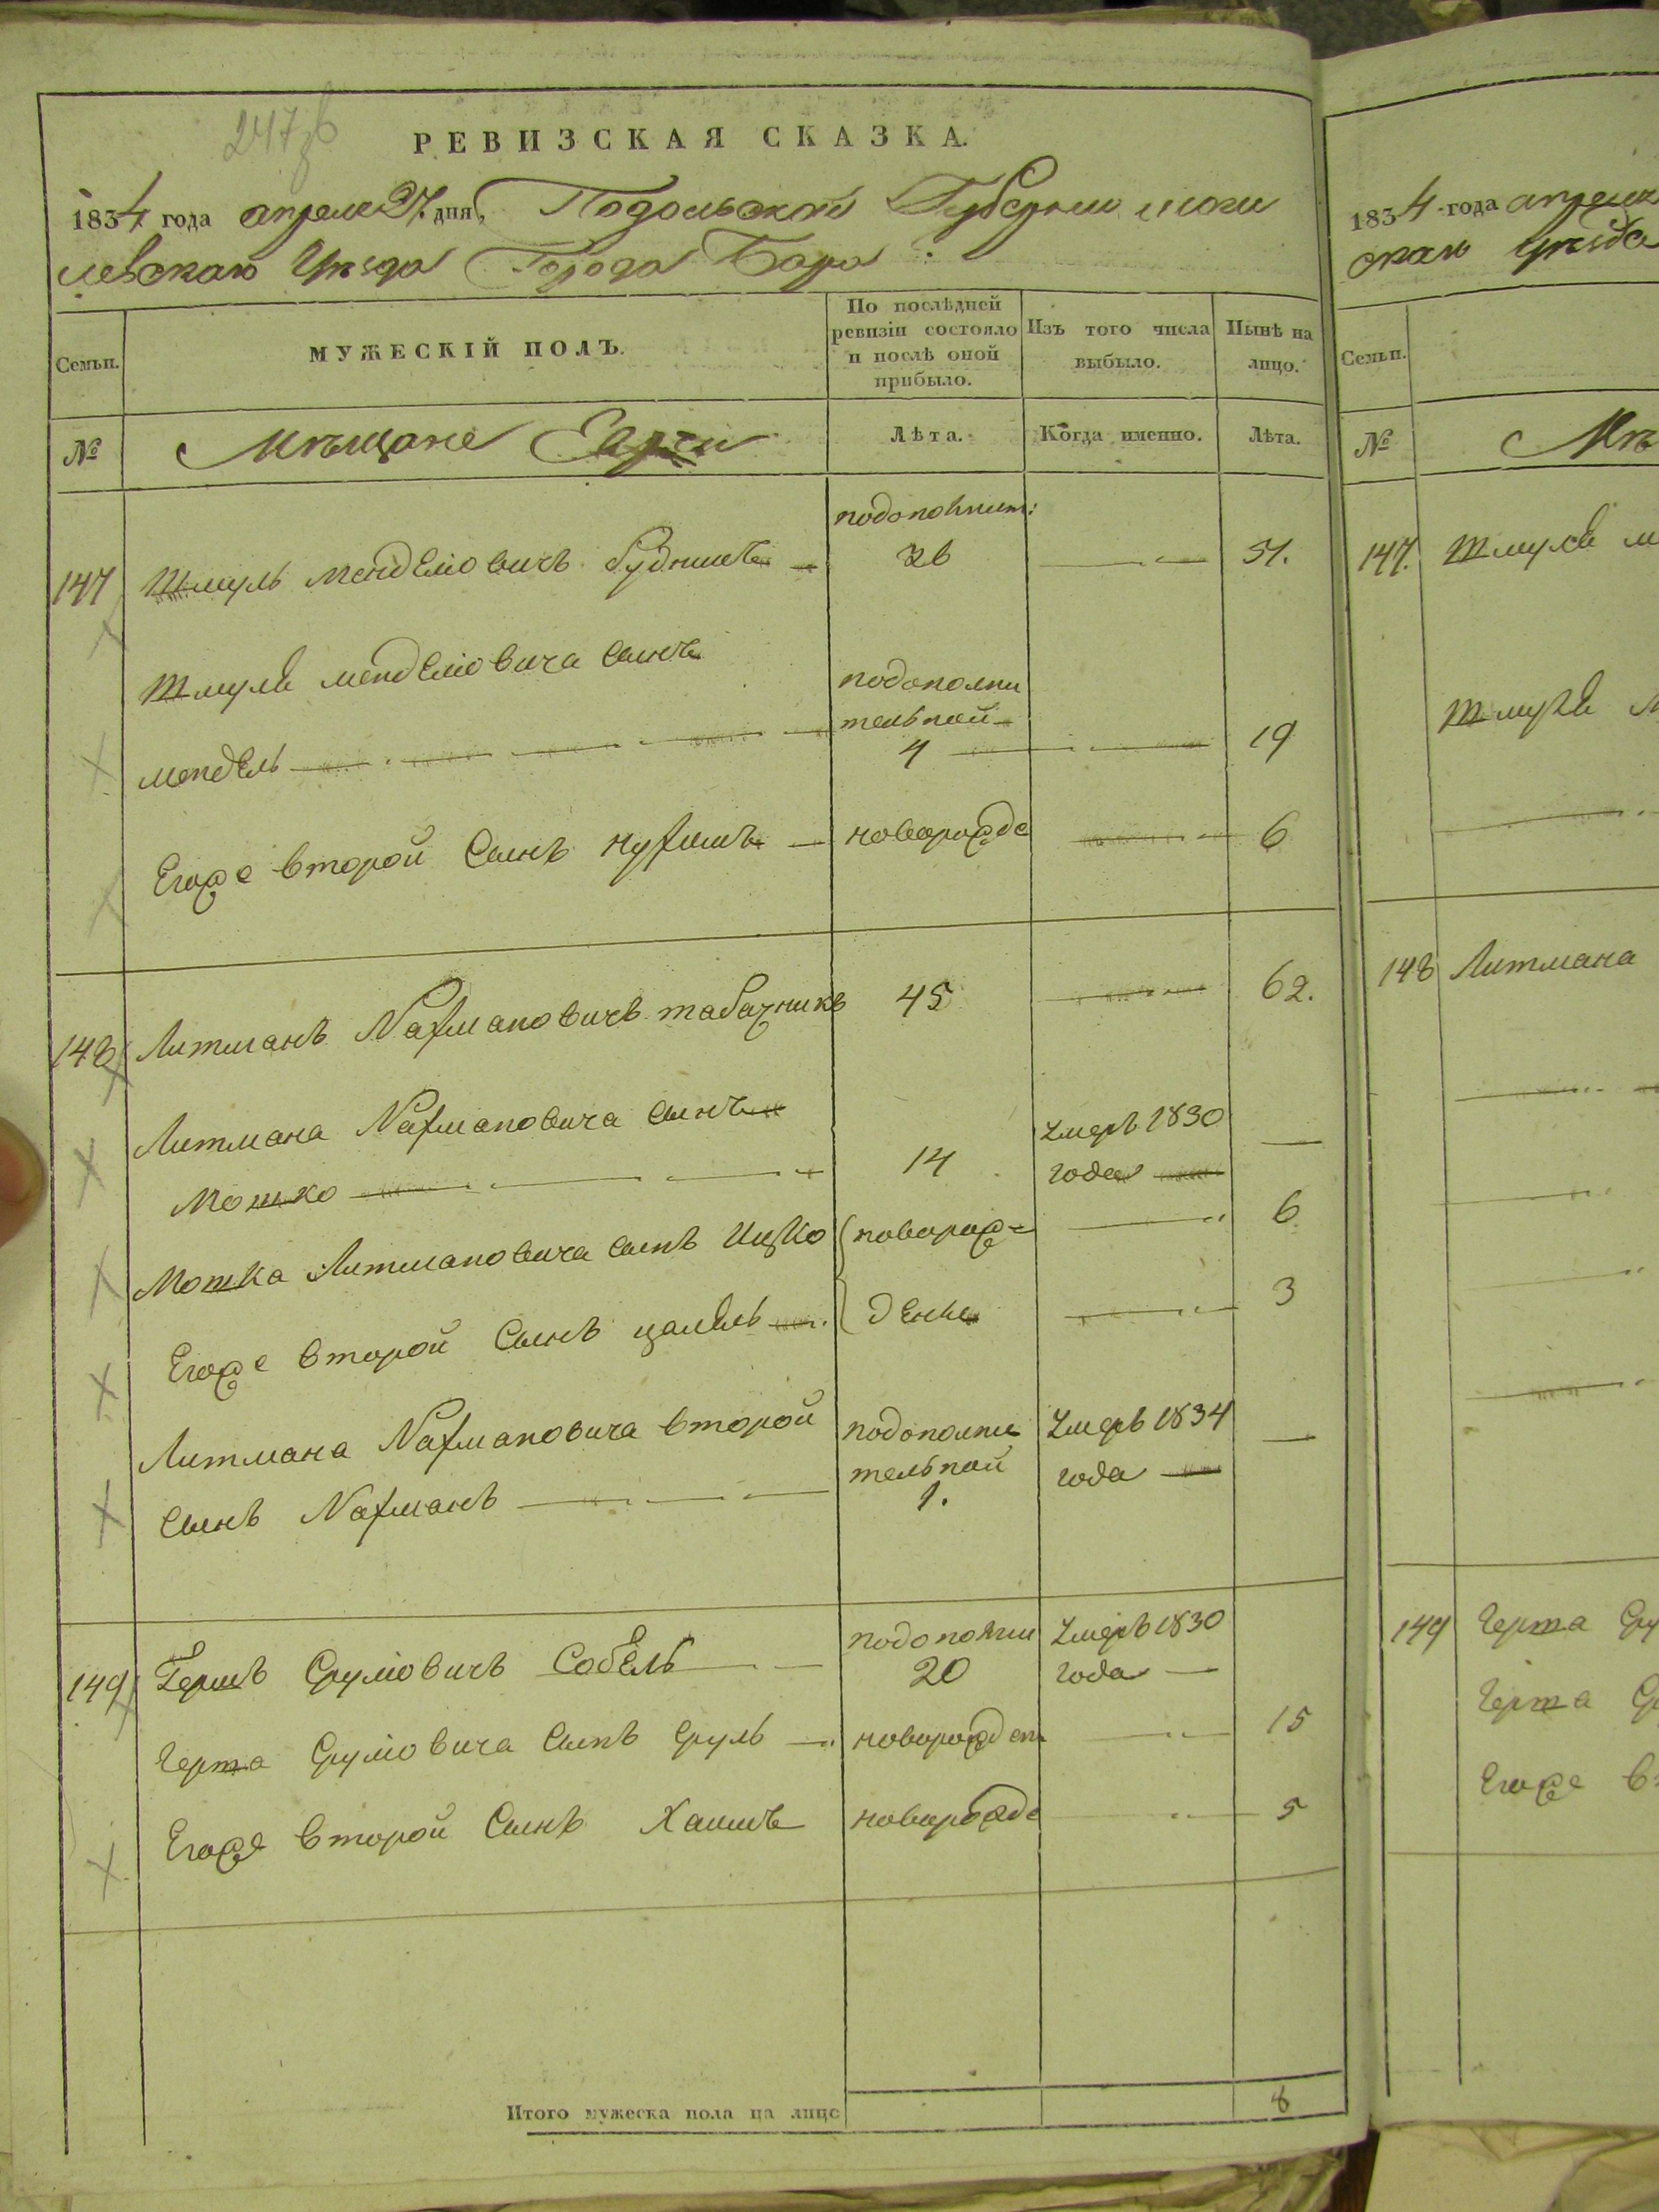 247 об
РЕВИЗСКАЯ СКАЗКА.
1834 года апреля 27 дня, Подольской Губернии моги
левскаго Уезда Города Бара
Семьи.
МУЖЕСКІЙ ПОЛЪ.
По послѣдней ревизіи состояло и послѣ оной прибыло.
Изъ того числа выбыло.
Нынѣ на лицо.
№
Мѣщане Евреи
Лѣта.
Когда именно.
Лѣта.
147 Шмуль Менделіовичъ подополнит: 36 51.
Шмуля Менделіовича сынъ
Мендель подополни тельной 4 19
Егоже второй Сынъ Нухимъ новорожде 6
148 Литманъ Нахмановичъ табачникъ 45 62.
Литмана Нахмановича сынъ
Мошко 14 умеръ 1830 года —
Мошка Литмановича сынъ Ицко новорож= 6
Егоже второй Сынъ дены 3
Литмана Нахмановича второй подополни умеръ 1834 —
Сынъ Нахманъ тельной 1. года
149 Гершъ Сруліовичъ Собель подополни 20 умеръ 1830 года
Герша Сруліовича Сынъ Сруль новорожден 15
Егоже второй Сынъ Хаимъ новорожде 5
Итого мужеска пола на лицо 8
1834 года апреля
скаго Уезда
Семьи.
№
Мѣ
147. Шмуля м
Шмуля м
148 Литмана
149 Герша Сру
Герша Ср
Егоже в